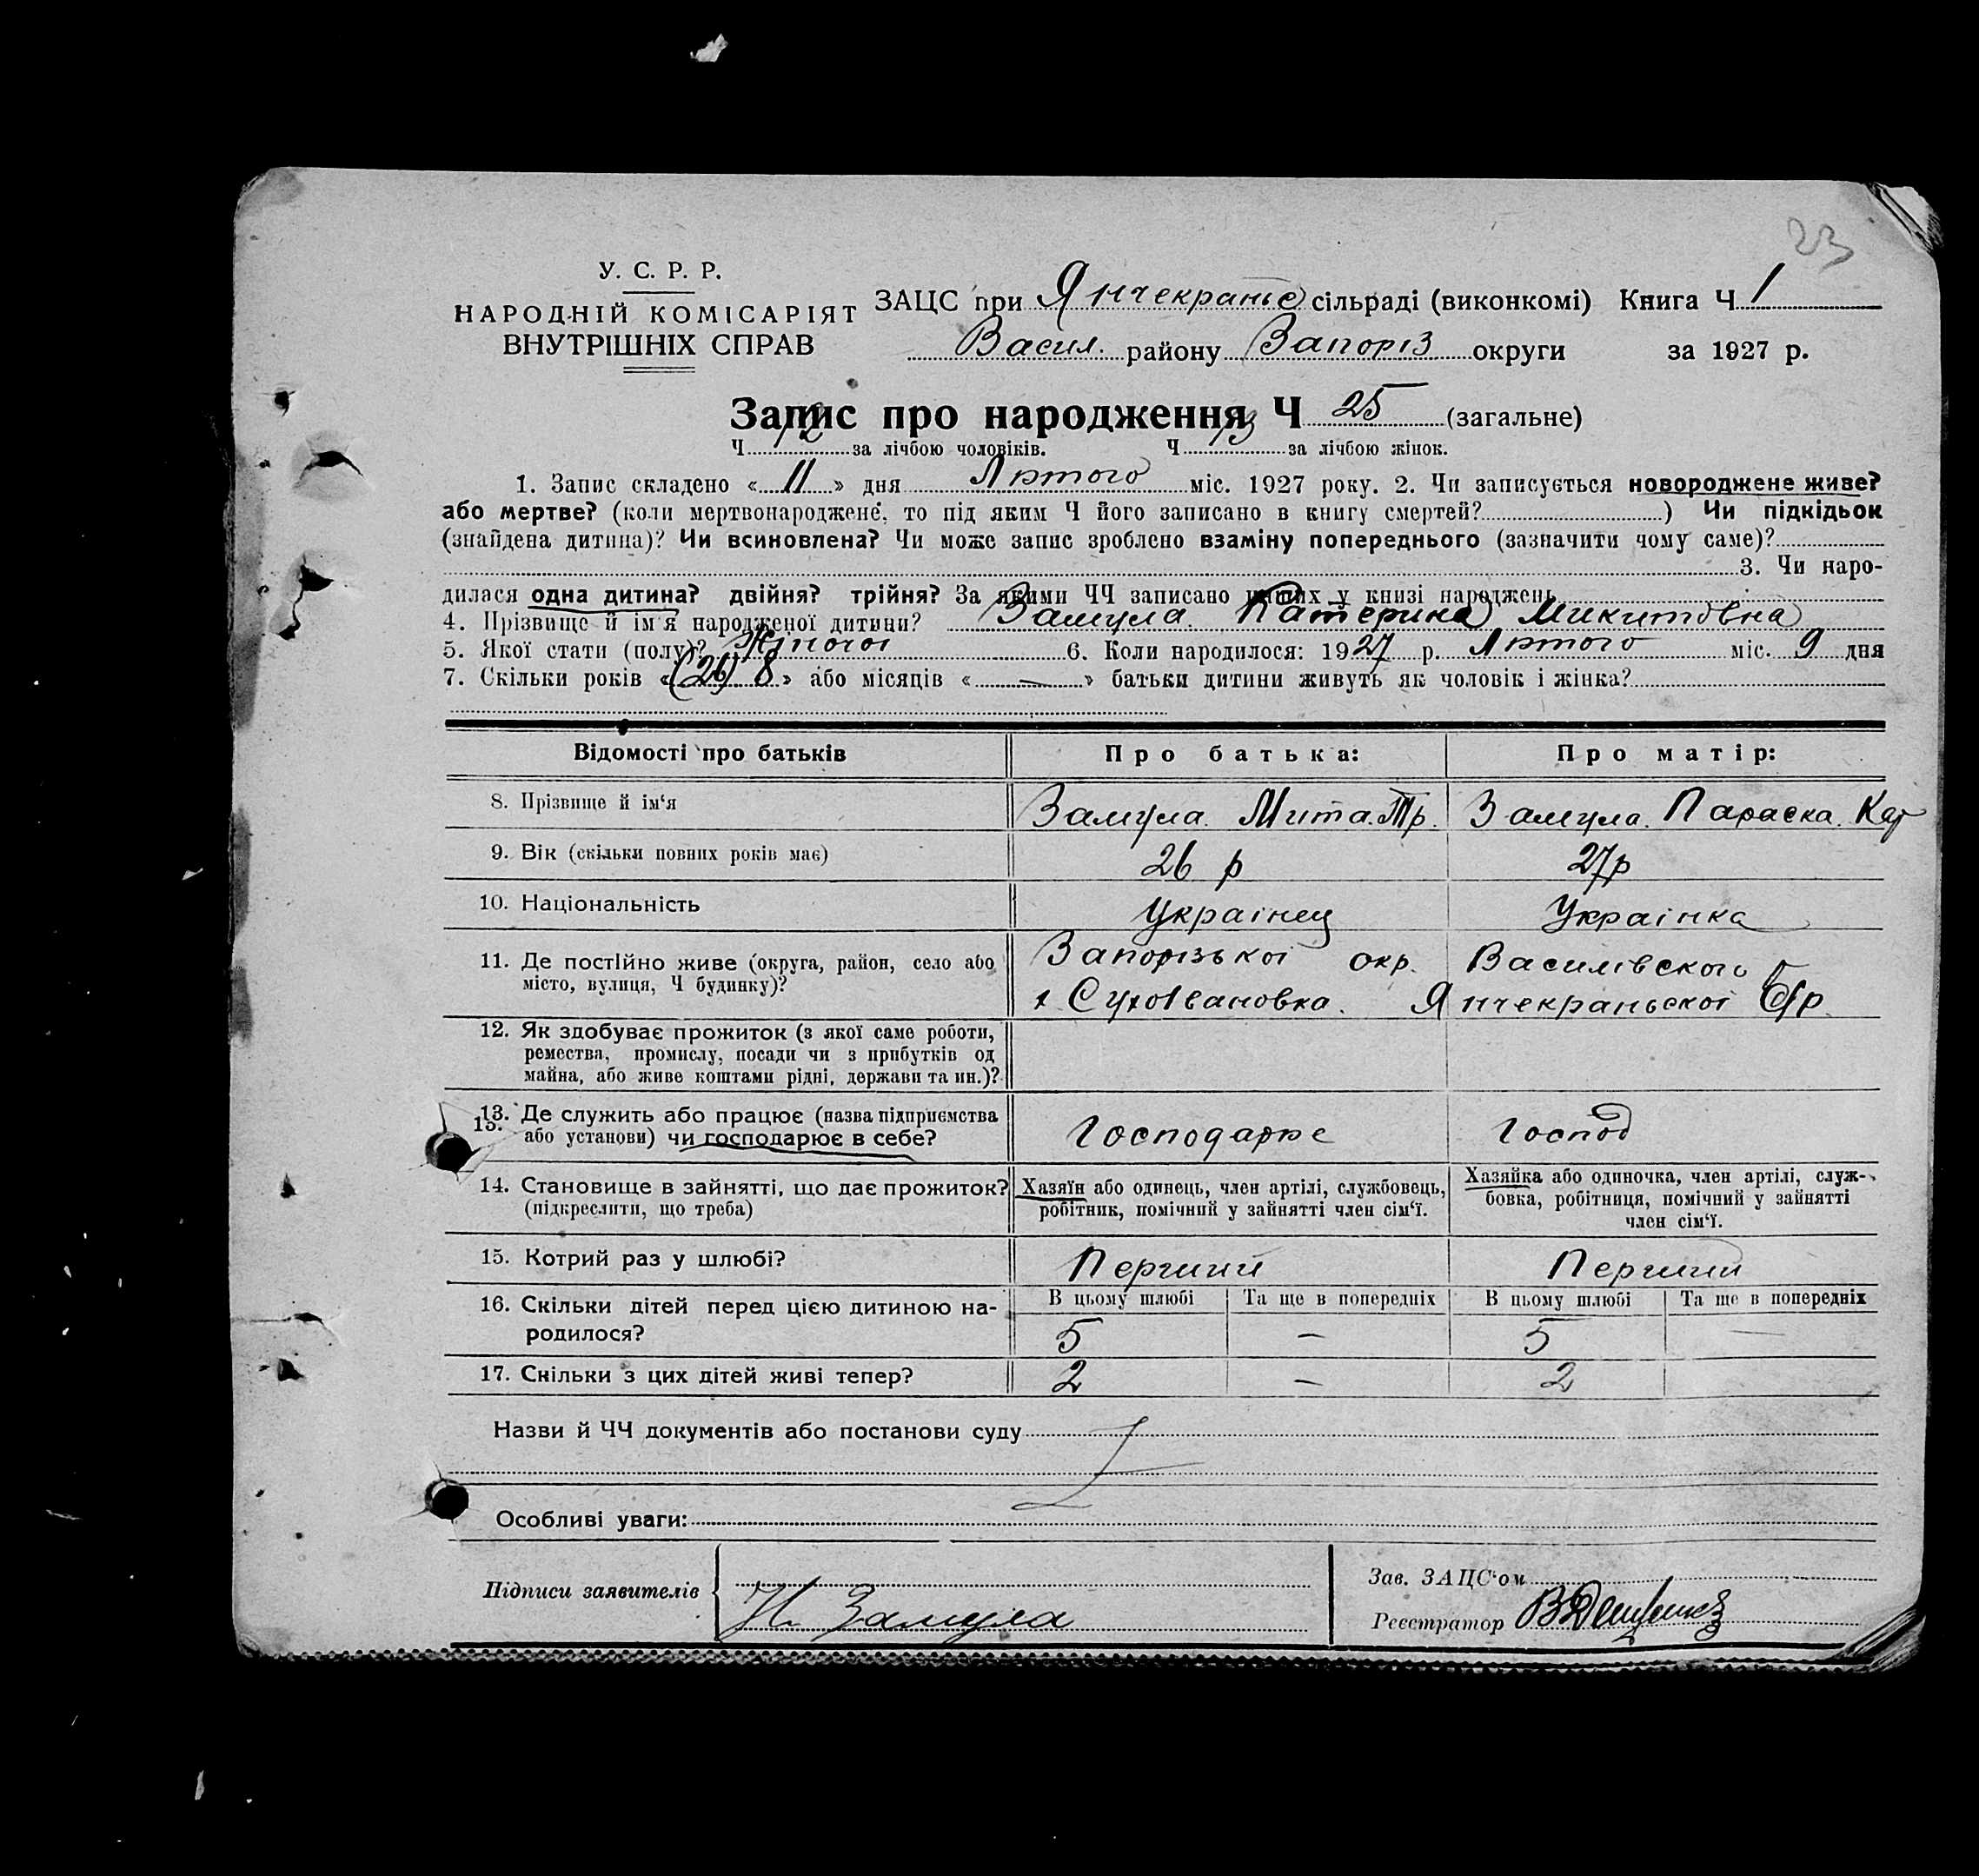 23
У. С. Р. Р.
НАРОДНІЙ КОМІСАРІЯТ
ВНУТРІШНІХ СПРАВ
ЗАЦС при Янчекраньс сільраді (виконкомі) Книга Ч 1
Васил. району Запоріз округи за 1927 р.
Запис про народження Ч 25 (загальне)
Ч 12 за лічбою чоловіків. Ч 13 за лічбою жінок.
1. Запис складено «11» дня Лютого міс. 1927 року. 2. Чи записується новороджене живе?
або мертве? (коли мертвонароджене, то під яким Ч його записано в книгу смертей? ) Чи підкідьок
(знайдена дитина)? Чи всиновлена? Чи може запис зроблено взаміну попереднього (зазначити чому саме)?
3. Чи наро-
дилася одна дитина? двійня? трійня? За якими ЧЧ записано инших у книзі народжень
4. Прізвище й ім'я народженої дитини? Замула Катерина Микитовна
5. Якої стати (полу)? Жіночої 6. Коли народилося: 1927 р. Лютого міс. 9 дня
7. Скільки років «(26) 8» або місяців «—» батьки дитини живуть як чоловік і жінка?
Відомості про батьків Про батька: Про матір:
8. Прізвище й ім'я Замула. Мита. Тр. Замула. Параска. Кар
9. Вік (скільки повних років має) 26 р 27р
10. Національність Украінец Украінка
11. Де постійно живе (округа, район, село або Запорізькоі окр. Василівского
місто, вулиця, Ч будинку)? х. Сухоівановка. Янчекраньскоі
12. Як здобуває прожиток (з якої саме роботи,
ремества, промислу, посади чи з прибутків од
майна, або живе коштами рідні, держави та ин.)?
13. Де служить або працює (назва підприємства
або установи) чи господарює в себе? Господарює Господ
14. Становище в зайнятті, що дає прожиток? Хазяїн або одинець, член артілі, службовець, Хазяйка або одиночка, член артілі, служ-
(підкреслити, що треба) робітник, помічний у зайнятті член сім'ї. бовка, робітниця, помічний у зайнятті
член сім'ї.
15. Котрий раз у шлюбі? Перший Перший
16. Скільки дітей перед цією дитиною на- В цьому шлюбі Та ще в попередніх В цьому шлюбі Та ще в попередніх
родилося? 5 — 5 —
17. Скільки з цих дітей живі тепер? 2 — 2
Назви й ЧЧ документів або постанови суду
Особливі уваги:
Зав. ЗАЦС'ом
Підписи заявителів Н. Замула
Реєстратор